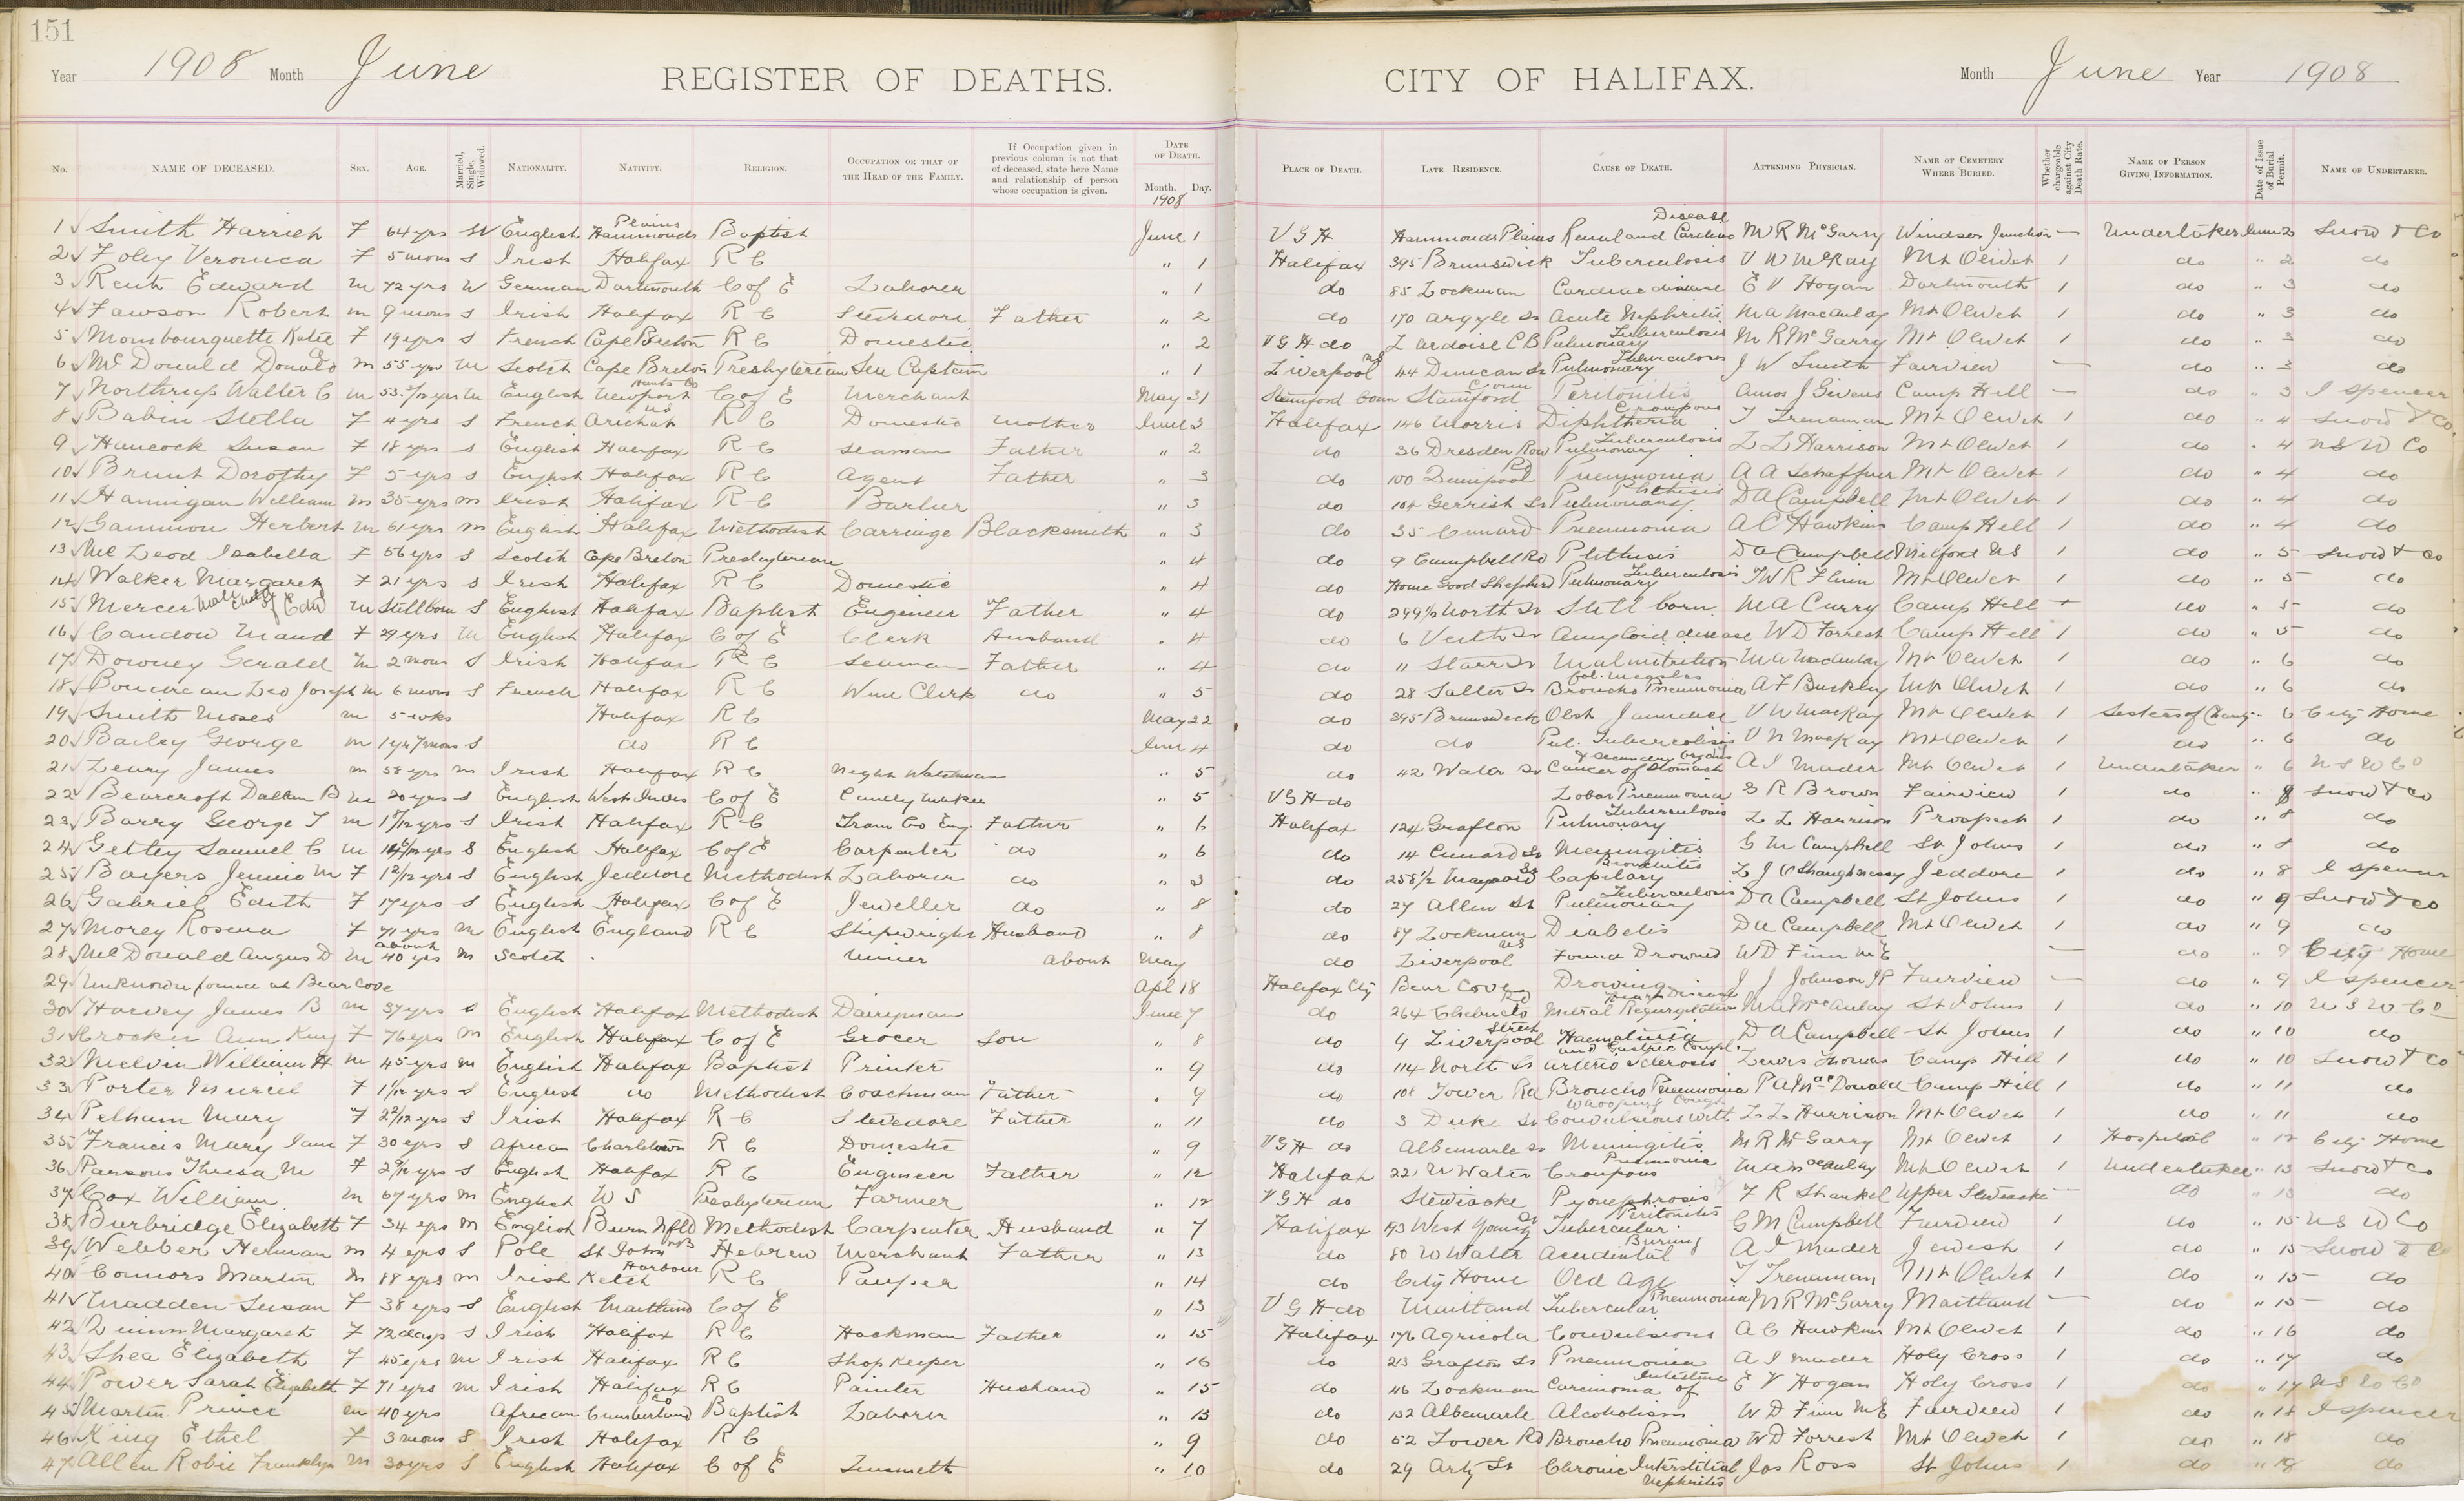 151
Year 1908 Month June REGISTER OF DEATHS. CITY OF HALIFAX. Month June Year 1908
No. NAME OF DECEASED. SEX. AGE. Married, Single, Widowed. NATIONALITY. NATIVITY. RELIGION. OCCUPATION OR THAT OF THE HEAD OF THE FAMILY. If Occupation given in previous column is not that of deceased, state here Name and relationship of person whose occupation is given. DATE OF DEATH. Month. Day. 1908 PLACE OF DEATH. LATE RESIDENCE. CAUSE OF DEATH. ATTENDING PHYSICIAN. NAME OF CEMETERY WHERE BURIED. Whether chargeable against City Death Rate. NAME OF PERSON GIVING INFORMATION. Date of Issue of Burial Permit. NAME OF UNDERTAKER.
1 Smith Harriet F 64 yrs W English Hammonds Plains Baptist June 1 V G H Hammonds Plains Renal and Cardiac Disease M R McGarry Windsor Junction — Undertaker June 2 Snow & Co
2 Foley Veronica F 5 mons S Irish Halifax R C " 1 Halifax 395 Brunswick Tuberculosis V N McKay Mt Olivet 1 do " 2 do
3 Edward m 72 yrs W German Dartmouth C of E Laborer " 1 do 85 Lockman Cardiac disease E V Hogan Dartmouth 1 do " 3 do
4 Fawson Robert m 9 mons S Irish Halifax R C Stevedore Father " 2 do 170 Argyle St Acute Nephritis M A MacAulay Mt Olivet 1 do " 3 do
5 Mombourquette Katie F 19 yrs S French Cape Breton R C Domestic " 2 V G H do L Ardoise C B Pulmonary Tuberculosis M R McGarry Mt Olivet 1 do " 3 do
6 Mc Donald Donald m 55 yrs m Scotch Cape Breton Presbyterian Sea Captain " 1 Liverpool NS 44 Duncan St Pulmonary Tuberculosis J W Smith Fairview — do " 3 do
7 Northrup Walter C m 53 yrs m English Newport Hants Co C of E Merchant May 31 Stamford Conn Stamford Conn Peritonitis Amos J Givens Camp Hill — do " 3 I Spencer
8 Babin Stella F 4 yrs S French Arichat NS R C Domestic Mother June 3 Halifax 146 Morris Diphtheria Croupous T Trenaman Mt Olivet 1 do " 4 Snow & Co
9 Hancock Susan F 18 yrs S English Halifax R C Seaman Father " 2 do 36 Dresden Row Pulmonary Tuberculosis L L Harrison Mt Olivet 1 do " 4 N S U Co
10 Brunt Dorothy F 5 yrs S English Halifax R C Agent Father " 3 do 100 Quinpool Rd Pneumonia A A Schaffner Mt Olivet 1 do " 4 do
11 Hannigan William m 35 yrs m Irish Halifax R C Barber " 3 do 104 Gerrish St Pulmonary Phthisis D A Campbell Mt Olivet 1 do " 4 do
12 Gammon Herbert m 61 yrs m English Halifax Methodist Carriage Blacksmith " 3 do 35 Cunard Pneumonia A C Hawkins Camp Hill 1 do " 4 do
13 Mc Leod Isabella F 56 yrs S Scotch Cape Breton Presbyterian " 4 do 9 Campbell Rd Phthisis D A Campbell Milford NS 1 do " 5 Snow & Co
14 Walker Margaret F 21 yrs S Irish Halifax R C Domestic " 4 do Home Good Shepherd Pulmonary Tuberculosis T W R Flinn Mt Olivet 1 do " 5 do
15 Mercer Male Child of Edw m Stillborn S English Halifax Baptist Engineer Father " 4 do 299½ North St Still born M A Curry Camp Hill + do " 5 do
16 Candow Maud F 29 yrs m English Halifax C of E Clerk Husband " 4 do 6 Veith St Amyloid disease W D Forrest Camp Hill 1 do " 5 do
17 Downey Gerald m 2 mons S Irish Halifax R C Seaman Father " 4 do 11 Starr St Malnutrition M A MacAulay Mt Olivet 1 do " 6 do
18 Boudreau Leo Joseph m 6 mons S French Halifax R C Wine Clerk do " 5 do 28 Salter St Broncho Pneumonia fol. measles A F Buckley Mt Olivet 1 do " 6 do
19 Smith Moses m 5 wks Halifax R C May 22 do 395 Brunswick Obst Jaundice V N MacKay Mt Olivet 1 Sisters of Charity " 6 City Home
20 Bailey George m 1 yr 7 mons S do R C June 4 do do Pul. Tuberculosis V N MacKay Mt Olivet 1 do " 6 do
21 Leary James m 58 yrs m Irish Halifax R C Night Watchman " 5 do 42 Water St Cancer of Stomach & secondary organs A I Mader Mt Olivet 1 Undertaker " 6 N S U Co
22 Bearcroft Dallan B m 20 yrs S English West Indies C of E Candy Maker " 5 V G H do Lobar Pneumonia G R Brown Fairview 1 do " 8 Snow & Co
23 Barry George T m yrs S Irish Halifax R C Tram Co Eng. Father " 6 Halifax 124 Grafton Pulmonary Tuberculosis L L Harrison Prospect 1 do " 8 do
24 Getley Samuel C m yrs S English Halifax C of E Carpenter do " 6 do 14 Cunard St Meningitis G M Campbell St Johns 1 do " 8 do
25 Bayers Jennie M F 1 2/12 yrs S English Jeddore Methodist Laborer do " 3 do 258½ Maynard St Capilary Bronchitis L J O'Shaughnessy Jeddore 1 do " 8 I Spencer
26 Gabriel Edith F 17 yrs S English Halifax C of E Jeweller do " 8 do 27 Allen St Pulmonary Tuberculosis D A Campbell St Johns 1 do " 9 Snow & Co
27 Morey Rosena F 71 yrs m English England R C Shipwright Husband " 8 do 87 Lockman Diabetis D A Campbell Mt Olivet 1 do " 9 do
28 Mc Donald Angus D m about 40 yrs m Scotch Miner about May do Liverpool NS Found Drowned W D Finn M E — do " 9 City Home
29 Unknown found at Bear Cove Apl 18 Halifax Cty Bear Cove Drowning J J Johnson JP Fairview — do " 9 I Spencer
30 Harvey James B m 37 yrs S English Halifax Methodist Dairyman June 7 do 264 Chebucto Rd Mitral Regurgitation Heart Disease M A McAulay St Johns 1 do " 10 N S U Co
31 Crocker Ann King F 76 yrs m English Halifax C of E Grocer Son " 8 do 9 Liverpool Street Haematuria and Gastric Compl. D A Campbell St Johns 1 do " 10 do
32 Melvin William H m 45 yrs m English Halifax Baptist Printer " 9 do 114 North St Arterio Sclerosis Lewis Thomas Camp Hill 1 do " 10 Snow & Co
33 Porter Muriel F 1/12 yrs S English do Methodist Coachman Father " 9 do 108 Tower Rd Broncho Pneumonia P A MacDonald Camp Hill 1 do " 11 do
34 Pelham Mary F 2 2/12 yrs S Irish Halifax R C Stevedore Father " 11 do 3 Duke St Convulsions with Whooping Cough L L Harrison Mt Olivet 1 do " 11 do
35 Francis Mary Jane F 30 yrs S African Charletown R C Domestic " 9 V G H do Albemarle St Meningitis M R McGarry Mt Olivet 1 Hospital " 12 City Home
36 Parsons Thresa M F yrs S English Halifax R C Engineer Father " 12 Halifax 221 U Water Croupous Pneumonia M A MacAulay Mt Olivet 1 Undertaker " 13 Snow & Co
37 Cox William m 67 yrs m English N S Presbyterian Farmer " 12 V G H do Stewiacke Pyonephrosis F R Shankel Upper Stewiacke — do " 13 do
38 Burbridge Elizabeth F 34 yrs m English Burin Nfld Methodist Carpenter Husband " 7 Halifax 193 West Young St Tubercular Peritonitis G M Campbell Fairview 1 do " 15 N S U Co
39 Webber Herman m 4 yrs S Pole St John NB Hebrew Merchant Father " 13 do 80 U Water Accidental Burning A I Mader Jewish 1 do " 15 Snow & Co
40 Connors Martin m 88 yrs m Irish Ketch Harbour R C Pauper " 14 do City Home Old Age T Trenaman Mt Olivet 1 do " 15 do
41 Madden Susan F 38 yrs S English Maitland C of E " 13 V G H do Maitland Tubercular Pneumonia M R McGarry Maitland — do " 15 do
42 Quinn Margaret F 72 days S Irish Halifax R C Hackman Father " 15 Halifax 176 Agricola Convulsions A C Hawkins Mt Olivet 1 do " 16 do
43 Shea Elizabeth F 45 yrs m Irish Halifax R C Shop Keeper " 16 do 213 Grafton St Pneumonia A I Mader Holy Cross 1 do " 17 do
44 Power Sarah Elizabeth F 71 yrs m Irish Halifax R C Painter Husband " 15 do 46 Lockman Carcinoma of Intestine E V Hogan Holy Cross 1 do " 17 N S U Co
45 Martin Prince m 40 yrs African Cumberland Co Baptist Laborer " 13 do 132 Albemarle Alcoholism W D Finn M E Fairview 1 do " 18 I Spencer
46 King Ethel F 3 mons S Irish Halifax R C " 9 do 52 Tower Rd Broncho Pneumonia W D Forrest Mt Olivet 1 do " 18 do
47 Allen Robie Franklyn m 30 yrs S English Halifax C of E Tinsmith " 10 do 29 Arty St Chronic Interstitial Nephritis Jas Ross St Johns 1 do " 19 do